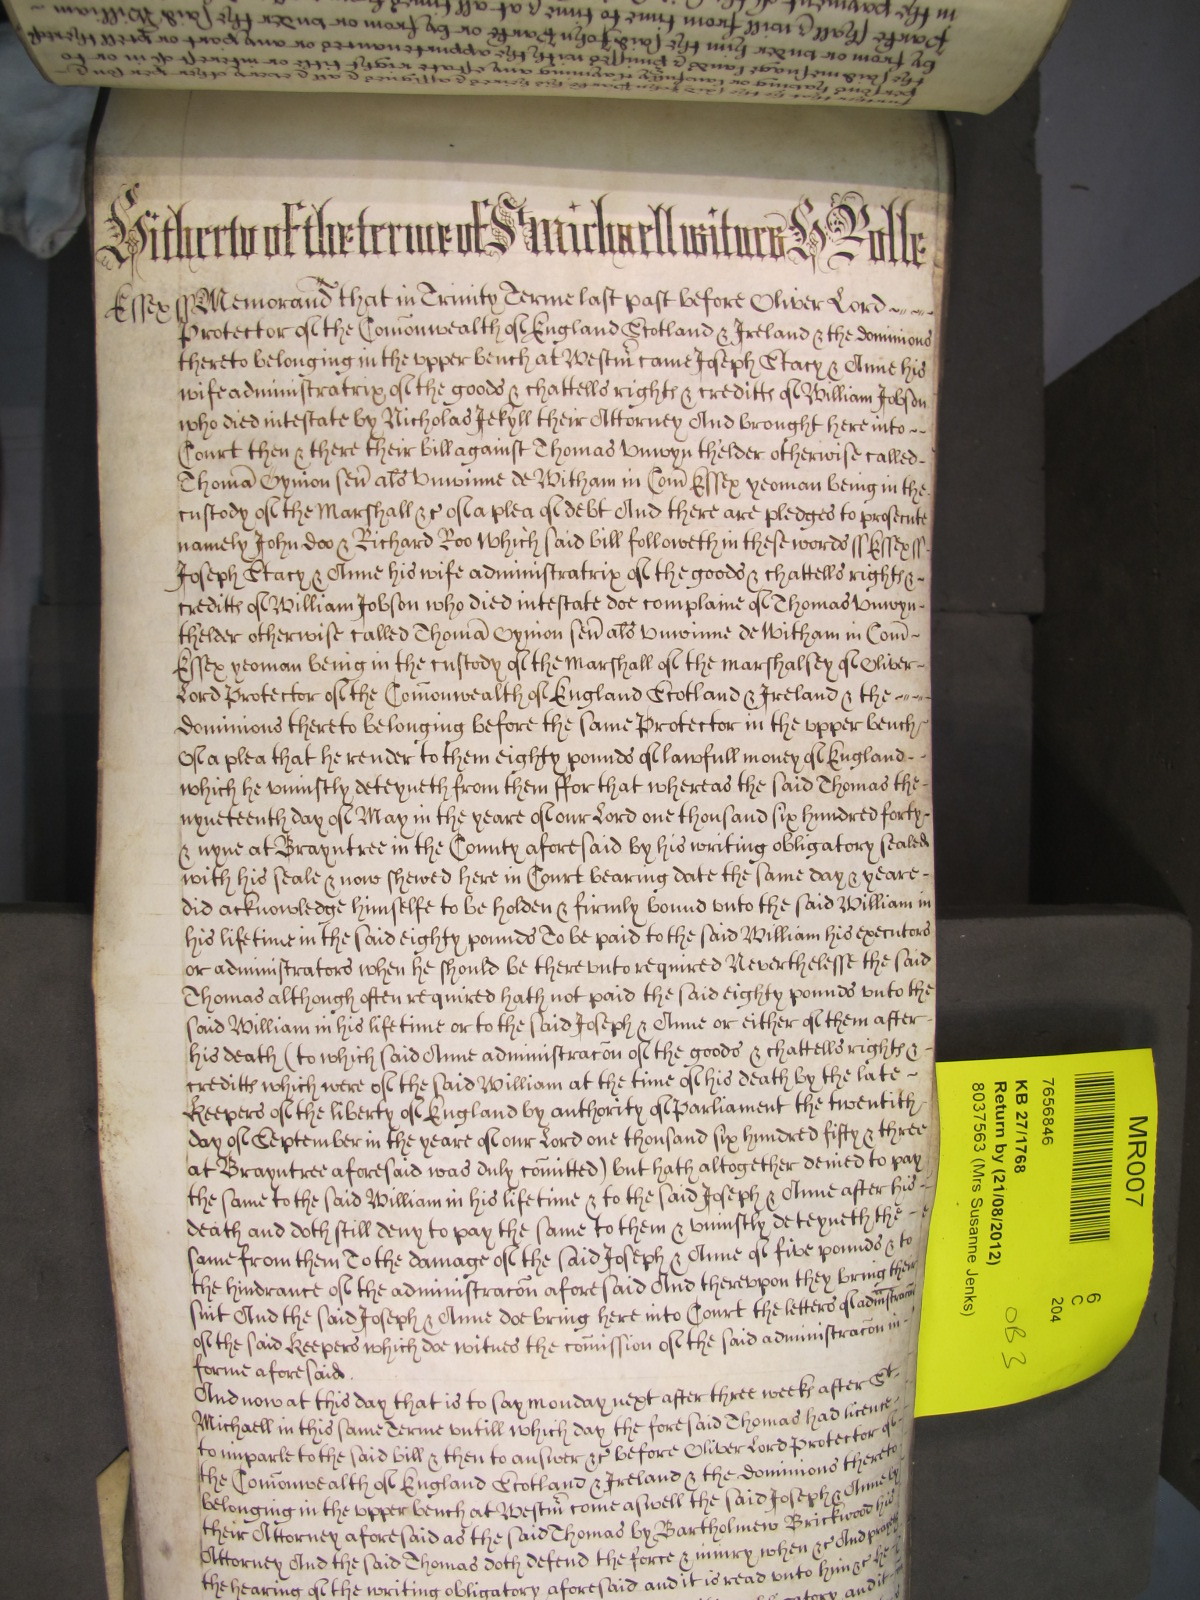 Hitherto of the terme of St michaell witnes H Rolle
Essex ss Memorand that in Trinity Terme last past before Oliver Lord
Protector of the Com̄onwealth of England Scotland & Ireland & the dominions
thereto belonging in the vpper bench at Westm̄ came Joseph Stacy & Anne his
wife administratrix of the goods & chattells rights & creditts of William Jobson
who died intestate by Nicholas Jekyll their Attorney And brought here into
Court then & there their bill against Thomas Vnwyn thelder otherwise called
Thomā Onyion sen̄ als̄ Vnwinne de Witham in Com̄ Essex yeoman being in the
custody of the Marshall &c of a plea of debt And there are pledges to prosecute
namely John Doo & Richard Roo Which said bill followeth in these words ss Essex ss
Joseph Stacy & Anne his wife administratrix of the goods & chattells rights &
creditts of William Jobson who died intestate doe complaine of Thomas Vnwyn
thelder otherwise called Thomā Onyion sen̄ als̄ Vnwinne de Witham in Com̄
Essex yeoman being in the custody of the Marshall of the marshalsey of Oliver
Lord Protector of the Com̄onwealth of England Scotland & Ireland & the
dominions thereto belonging before the same Protector in the vpper bench
Of a plea that he render to them eighty pounds of lawfull money of England
which he vniustly deteyneth from them ffor that whereas the said Thomas the
nyneteenth day of May in the yeare of our Lord one thousand six hundred forty
& nyne at Brayntree in the County aforesaid by his writing obligatory sealed
with his seale & now shewed here in Court bearing date the same day & yeare
did acknowledge himselfe to be holden & firmly bound vnto the said William in
his lifetime in the said eighty pounds To be paid to the said William his executors
or administrators when he should be therevnto required Neverthelesse the said
Thomas although often required hath not paid the said eighty pounds vnto the
said William in his lifetime or to the said Joseph & Anne or either of them after
his death (to which said Anne administracōn of the goods & chattells rights &
creditts which were of the said William at the time of his death by the late
Keepers of the liberty of England by authority of Parliament the twentith
day of September in the yeare of our Lord one thousand six hundred fifty & three
at Brayntree aforesaid was duly com̄itted) but hath altogether denied to pay
the same to the said William in his lifetime & to the said Joseph & Anne after his
death and doth still deny to pay the same to them & vniustly deteyneth the
same from them To the damage of the said Joseph & Anne of five pounds & to
the hindrance of the administracōn aforesaid And therevpon they bring their
suit And the said Joseph & Anne doe bring here into Court the letters of administracōn
of the said Keepers which doe witnes the com̄ission of the said administracōn in
forme aforesaid.
And now at this day that is to say monday next after three weeks after St
Michaell in this same Terme vntill which day the foresaid Thomas had licence
to imparle to the said bill & then to answer &c before Oliver Lord Protector of
the Com̄onwealth of England Scotland & Ireland & the dominions thereto
belonging in the vpper bench at Westm̄ come aswell the said Joseph & Anne by
their Attorney aforesaid as the said Thomas by Bartholmew Brickwood his
Attorney And the said Thomas doth defend the force & iniury when &c And prayes
the hearing of the writing obligatory aforesaid and it is read vnto him &c he
MR007
7656846
KB 27/1768
Return by (21/08/2012)
8037563 (Mrs Susanne Jenks)
6
C
204
OB 3